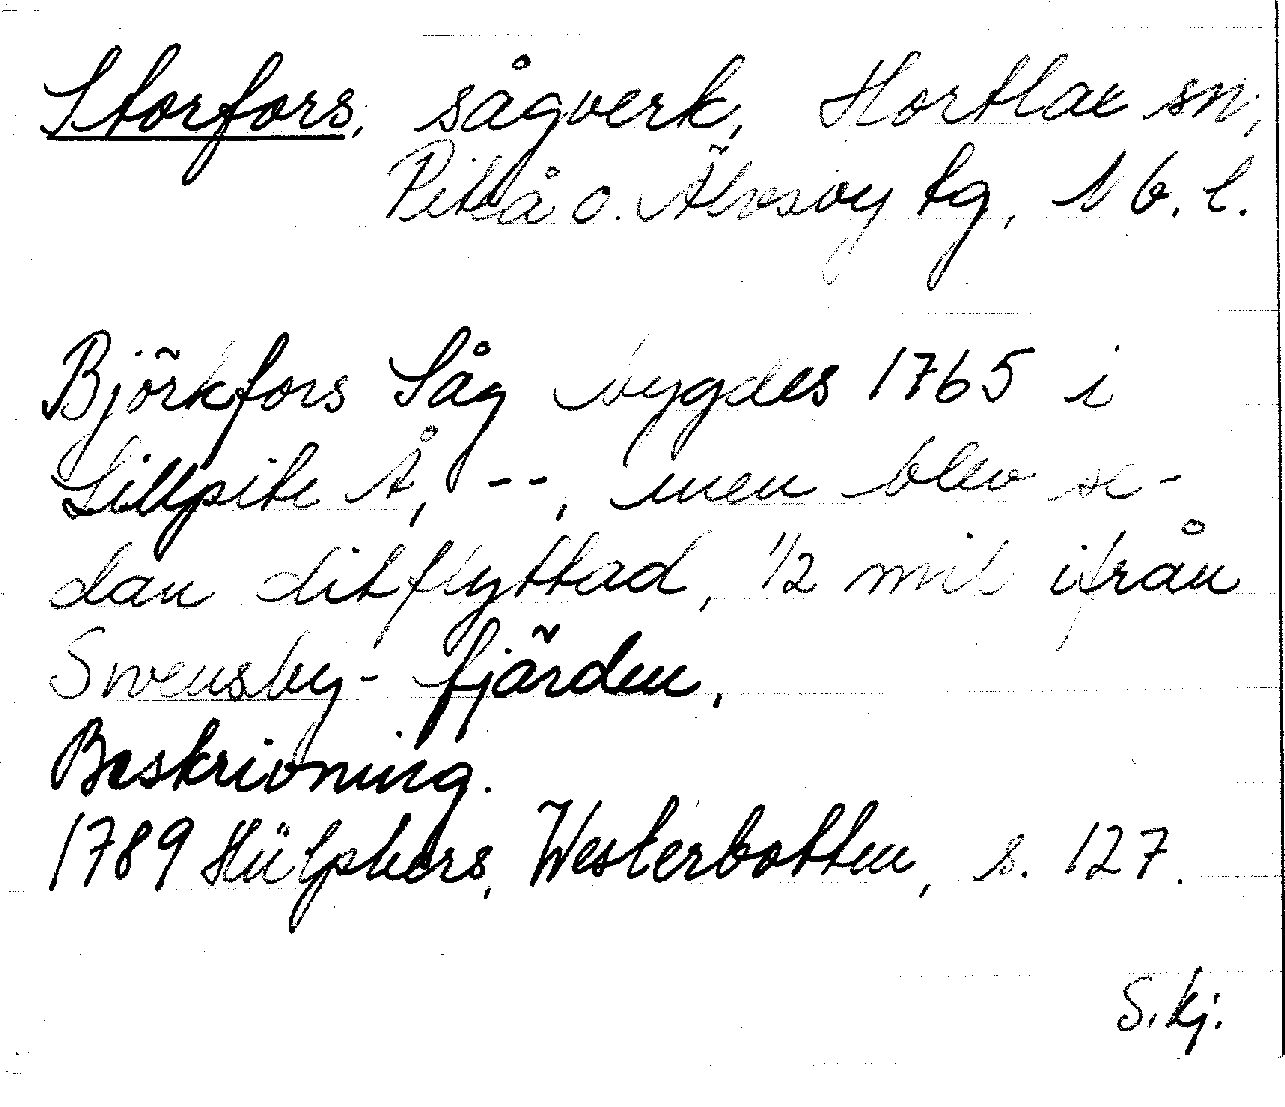 Storfors, sågverk, Hortlax sn,
Piteå o. Älvsby tg, Nb. l.
Björkfors Såg bygdes 1765 i
Lillpite Å, --, men blev se-
dan ditflyttad, 1/2 mil ifrån
Swensby-fjärden.
Beskrivning.
1789 Hülphers, Westerbotten, s. 127.
S. kj.